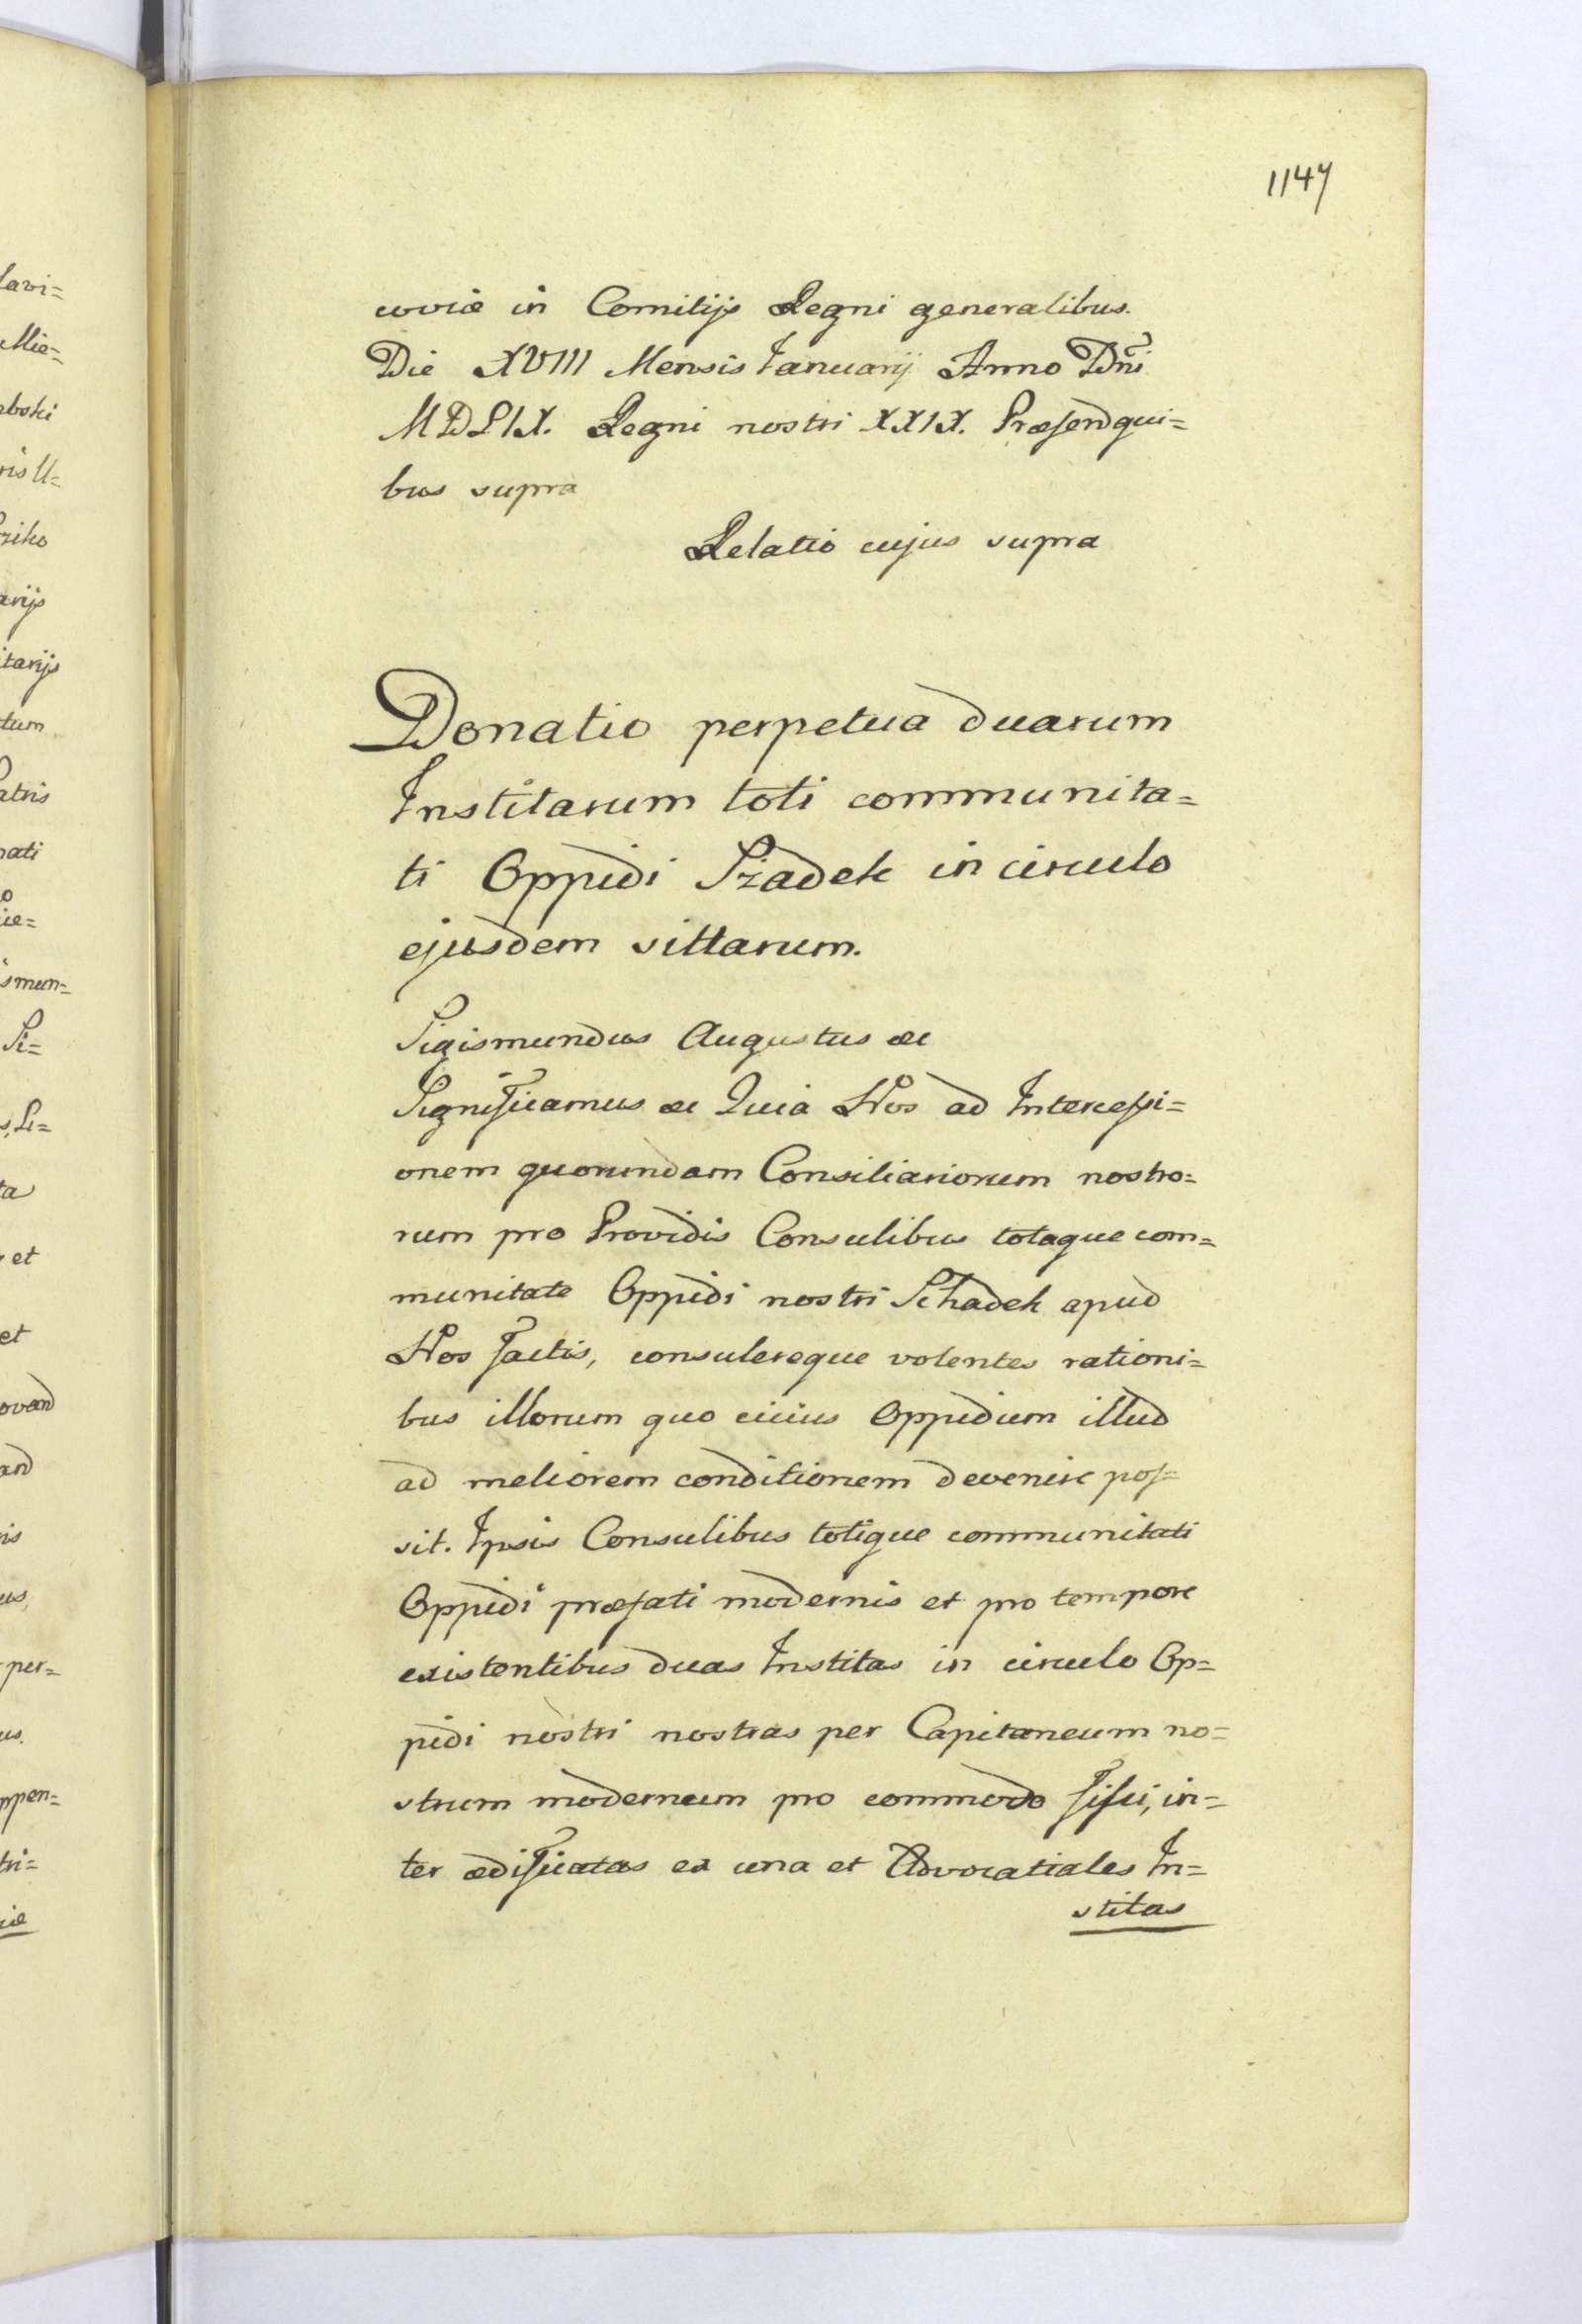 1147
coviæ in Comitijs Regni generalibus.
Die XVIII Mensis Januarij Anno Dñi
MDLIX. Regni nostri XXIX. Præsend qui=
bus supra
Relatio cujus supra
Donatio perpetua duarum
Institarum toti communita=
ti Oppidi Szadek in circulo
ejusdem sittarum.
Sigismundus Augustus &c
Significamus &c Quia Nos ad Intercessi=
onem quorundam Consiliariorum nostro=
rum pro Providis Consulibus totaque com=
munitate Oppidi nostri Schadek apud
Nos factis, consulereque volentes rationi=
bus illorum quo citius Oppidum illud
ad meliorem conditionem devenire pos=
sit. Ipsis Consulibus totique communitati
Oppidi præfati modernis et pro tempore
existentibus duas Institas in circulo Op=
pidi nostri nostras per Capitaneum no=
strum modernum pro commodo fisci, in=
ter ædificatas ex una et Advocatiales In=
stitas
lavi=
Mie=
bski
ris U=
ziko
arijs
itarijs
tum
atris
nati
o
cie=
smun=
Si=
s, Li=
ta
et
et
ovand
and
is
us,
per=
us.
ppen=
tri=
iæ